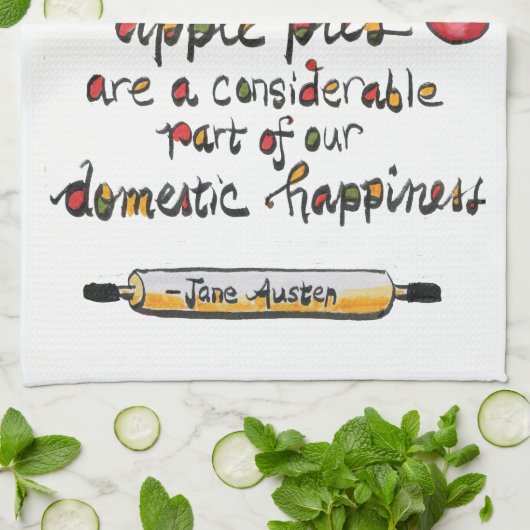 apple pies
are a considerable
part of our
domestic happiness
-Jane Austen